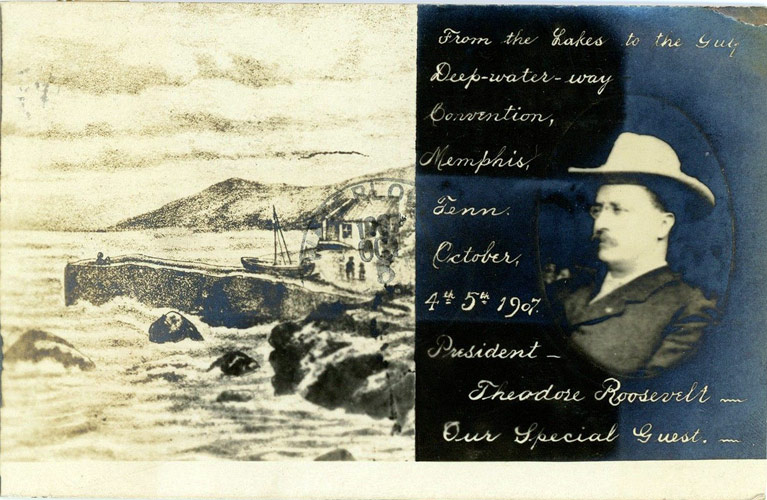 From the Lakes to the Gulf
Deep-water-way
Convention,
Memphis,
Tenn.
October,
4th 5th 1907.
President –
Theodore Roosevelt –
Our Special Guest. –